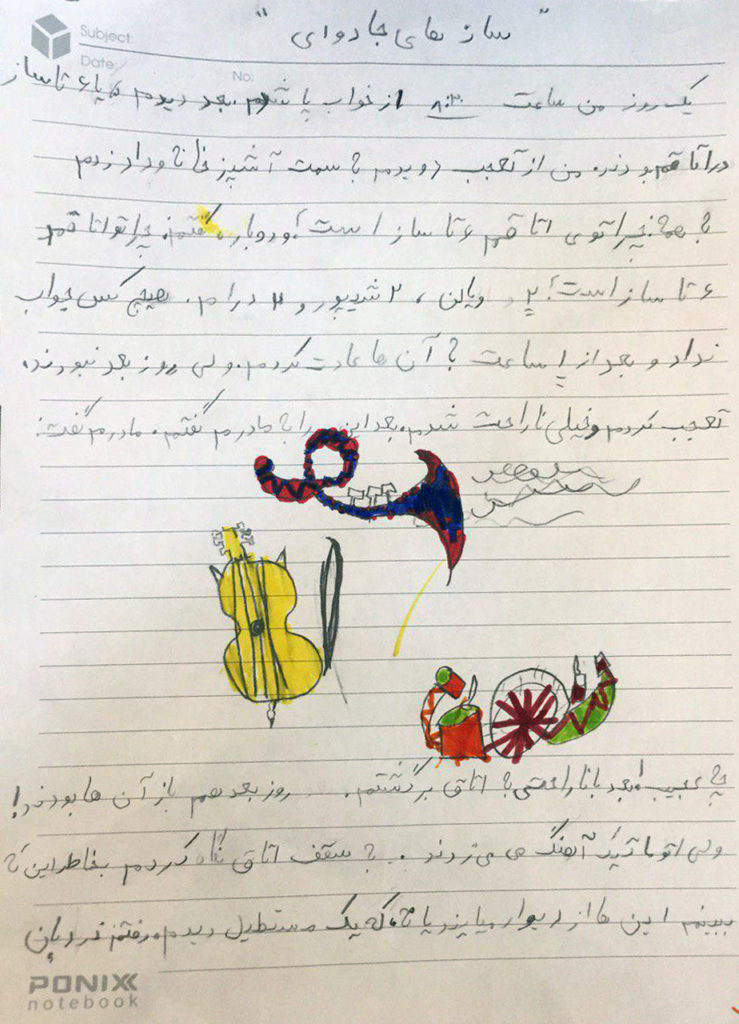 Subject:
Date:
No:
"ساز های جادوای"
یک روز من ساعت ۸:۳۰ از خواب پا شدم. بعد دیدم ۶ تا ساز
در اتا قم بودند. من از تعجب دویدم با سمت آشپز خانا و داد زدم
با همه: چرا توی اتا قم ۶ تا ساز است! دوباره گفتم: چرا تو اتا قم
۶ تا ساز است! ۲ ویالن، ۲ شیپور و ۲ درام. هیچ کس جواب
نداد و بعد از ۱ ساعت با آن ها عادت کردم. ولی روز بعد نبودند.
تعجب کردم و خیلی ناراحت شدم. بعد این را با مادرم گفتم. مادرم گفت:
چا عجیب! بعد با ناراحتی با اتاق برگشتم. ... روز بعد هم باز آن ها بودند!
ولی اتوماتیک آهنگ می زدند. با سقف اتاق نگاه کردم بخاطر این کا
ببینم این ها از دیوار میایند یا نا، که یک مستطیل دیدم. رفتم نردبان
PONIXX
notebook